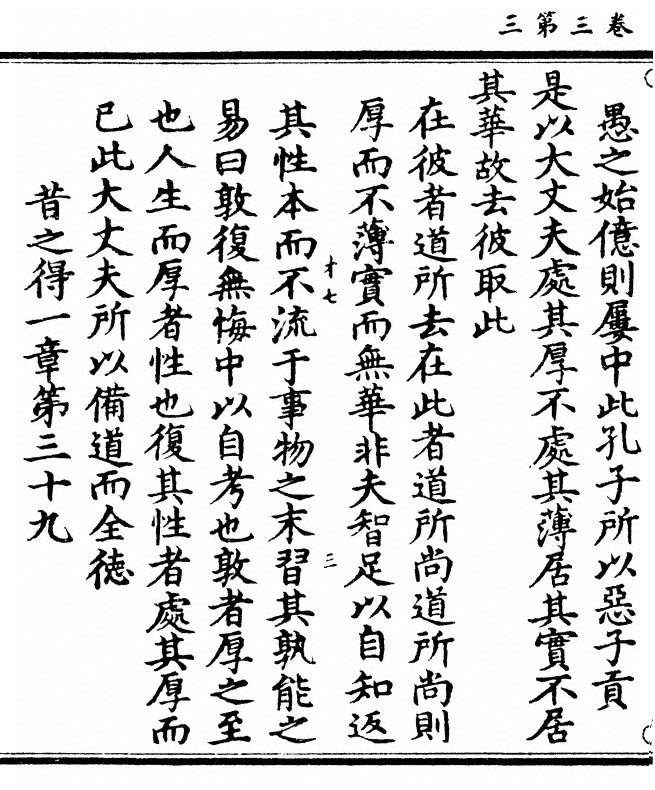 卷三第三
愚之始億則屢中此孔子所以惡子貢
是以大丈夫處其厚不處其薄居其實不居
其華故去彼取此
在彼者道所去在此者道所尚道所尚則
厚而不薄實而無華非夫智足以自知返
才七
三
其性本而不流于事物之末習其孰能之
易曰敦復無悔中以自考也敦者厚之至
也人生而厚者性也復其性者處其厚而
已此大丈夫所以備道而全德
昔之得一章第三十九